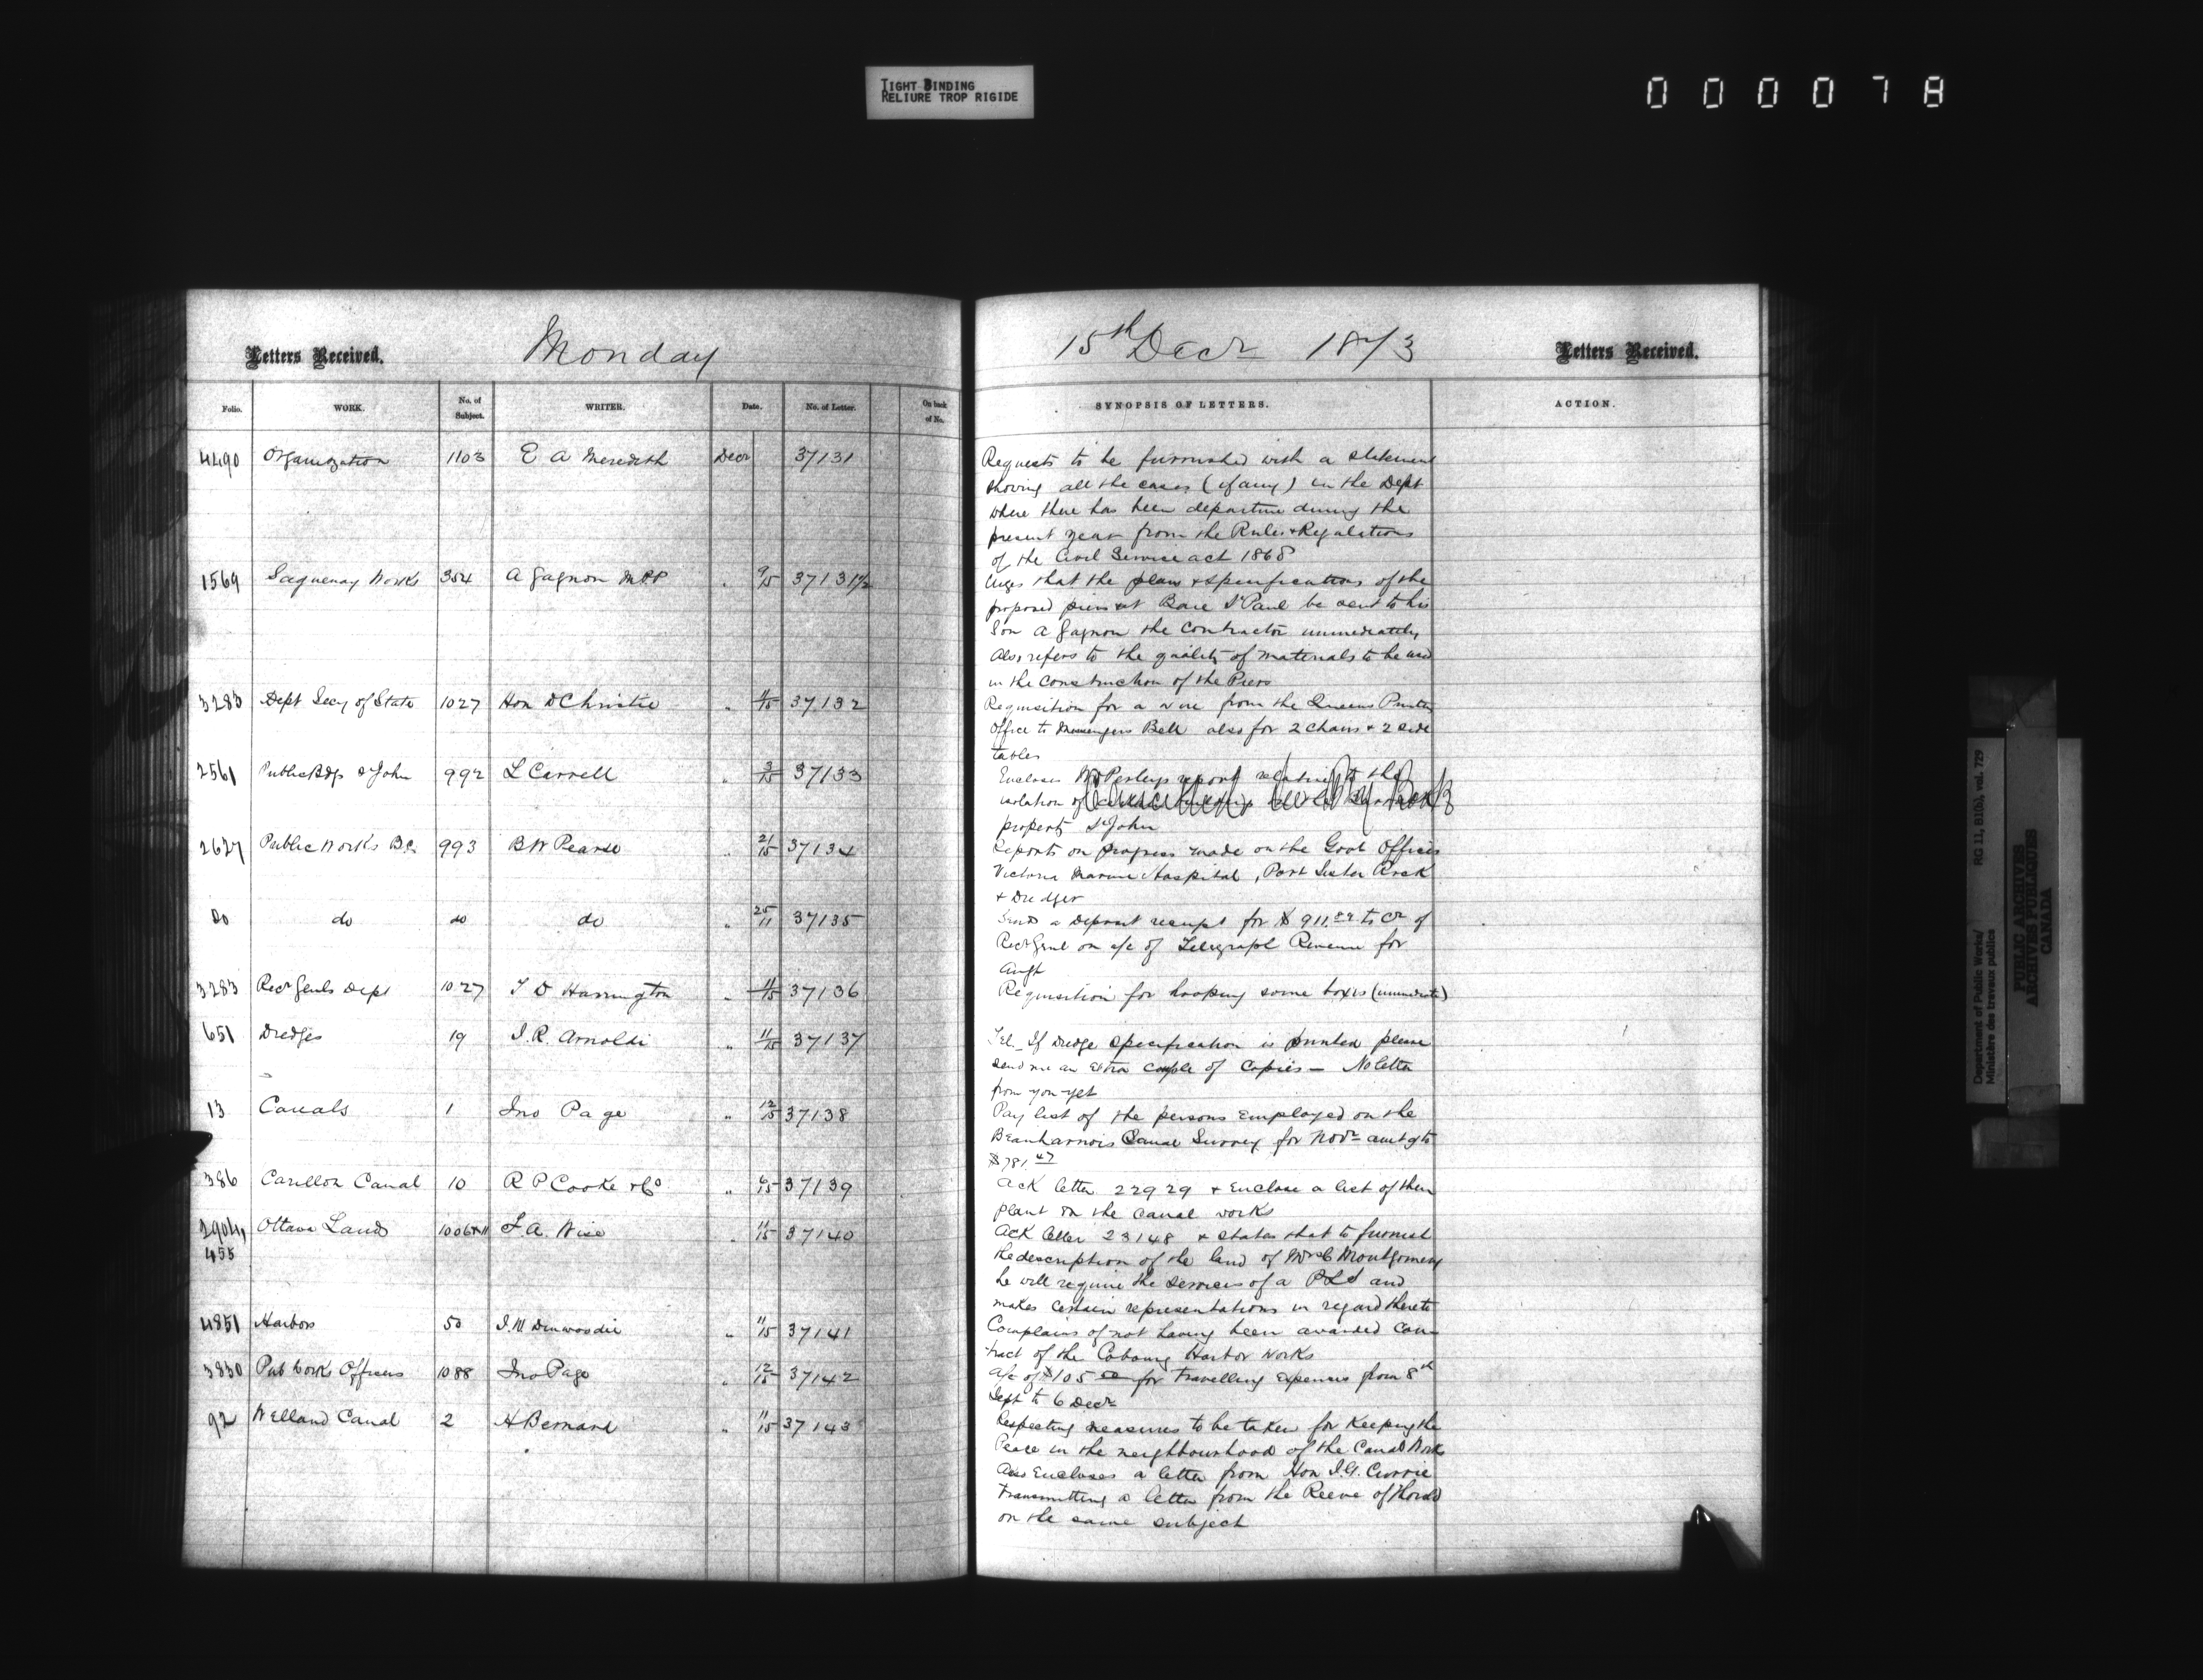 TIGHT BINDING
RELIURE TROP RIGIDE
000078
Letters Received. Monday 15th Decr 1873 Letters Received.
Folio. WORK. No. of Subject. WRITER. Date. No. of Letter. On back of No. SYNOPSIS OF LETTERS. ACTION.
4490 Organization 1103 E A Meredith Decr 37131 Requests to be furnished with a statement
showing all the cases (if any) in the Dept
where there has been departure during the
present year from the Rules & Regulations
of the Civil Service act 1868
1569 Saguenay Works 354 A Gagnon MPP " 9/15 37131½ Urges that the plans & specifications of the
proposed piers at Baie St Paul be sent to his
Son A Gagnon the Contractor immediately
Also refers to the quality of materials to be used
in the construction of the Piers
3283 Dept Secy of State 1027 Hon D Christie " 11/15 37132 Requisition for a wire from the Queens Printer
Office to Messengers Bell also for 2 chairs & 2 side
tables
2561 Public Bdgs St John 992 L Carvell " 3/15 37133 Encloses Mr Perleys report relative to the
isolation of
property St John
2627 Public Works B.C. 993 B W Pearse " 21/15 37134 Reports on progress made on the Govt Offices
Victoria Marine Hospital, Port
& Dredger
Do do do do " 25/11 37135 Sends a Deposit receipt for $911. to Cr of
Recr Genl on a/c of Telegraph Revenue for
Augt
3283 Recr Genls Dept 1027 T D Harrington " 11/15 37136 Requisition for hooping some boxes (immediate)
651 Dredges 19 J. R. Arnoldi " 11/15 37137 Tel_ If Dredge specification is printed please
send me an extra couple of Copies — No letter
from you yet
13 Canals 1 Jno Page " 12/15 37138 Pay list of the persons Employed on the
Beauharnois Canal Survey for Novr amtg to
$781.47
386 Carillon Canal 10 R P Cooke & Co " 6/15 37139 Ack letter 22929 & Enclose a list of their
plant on the canal works
2904, Ottawa Lands 1006 & 11 F. A. Wise " 11/15 37140 Ack letter 23148 & states that to furnish
455 the description of the land of Mrs C Montgomery
he will require the services of a PLS and
makes certain representations in regard thereto
4851 Harbors 50 J. W Dinwoodie " 11/15 37141 Complains of not having been awarded con-
tract of the Cobourg Harbor Works
3830 Pub Works Officers 1088 Jno Page " 12/15 37142 A/c of $105 for Travelling Expenses from 8th
Sept to 6 Decr
92 Welland Canal 2 H Bernard " 11/15 37143 Respecting measures to be taken for Keeping the
Peace in the neighbourhood of the Canal Works
Also Encloses a letter from Hon J. G. Currie
transmitting a letter from the Reeve of Thorold
on the same subject
Department of Public Works/ RG 11, B1(b), vol. 729
Ministère des travaux publics
PUBLIC ARCHIVES
ARCHIVES PUBLIQUES
CANADA